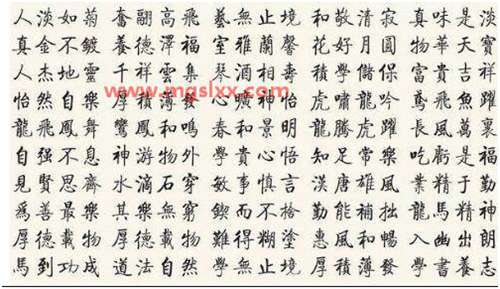 人淡如菊 奮翮高飛 藝無止境 和敬清寂 真味是淡
真金不鍍 養德澤福 室雅蘭馨 花好月圓 物華天寶
人杰地靈 千祥雲集 琴酒相壽 學儲保 富貴吉祥
怡然自樂 厚積薄發 心曠神怡 虎嘯龍吟 鳶飛魚躍
龍飛鳳舞 鸞鳳和鳴 春和景明 龍騰虎躍 長風萬裏
自强不息 神游物外 學貴心悟 知足常樂 吃虧是福
見賢思齊 水滴石穿 敏事慎言 漢唐雄風 業精于勤
為善最樂 其樂無窮 鍥而不捨 勤能補拙 龍馬精神
厚德載物 厚德載物 難得糊塗 惠風和暢 入幽出朗
馬到功成 道法自然 學無止境 厚積薄發 學書養志
www.mgslxx.com